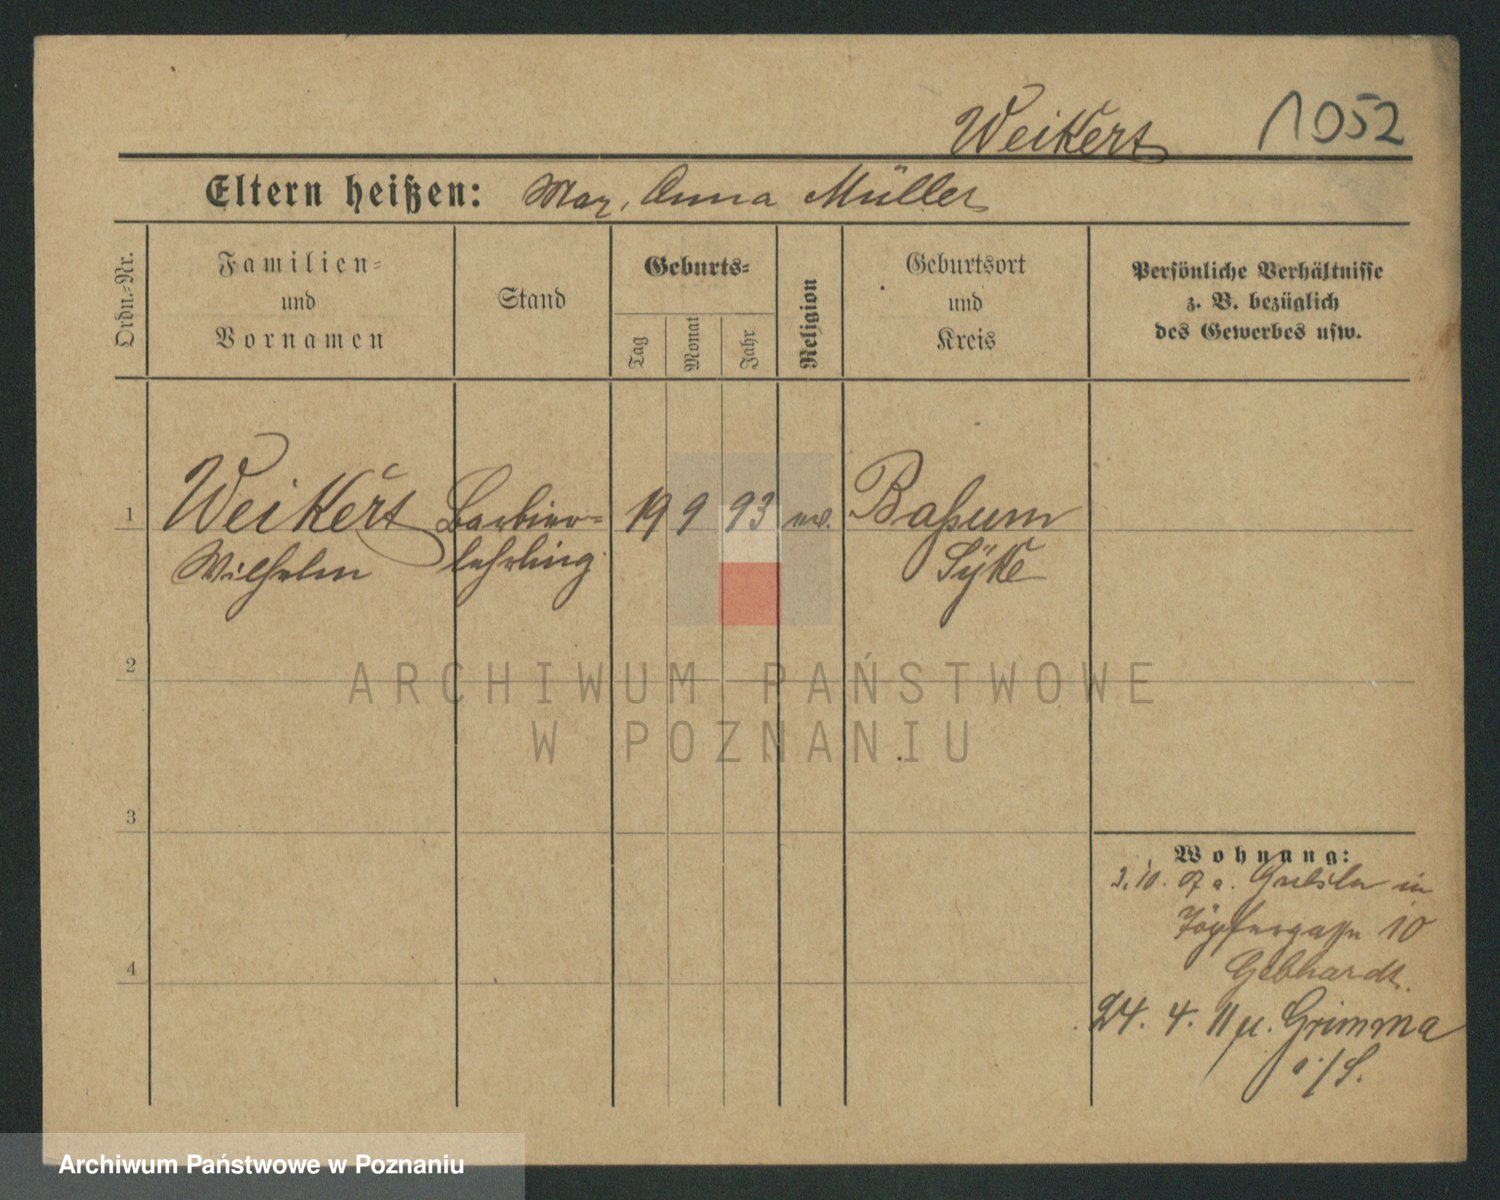 Weikert 1052
Eltern heißen: Max, Anna Müller
Ordn.-Nr.
Familien-
und
Vornamen
Stand
Geburts-
Tag
Monat
Jahr
Religion
Geburtsort
und
Kreis
Persönliche Verhältnisse
z. B. bezüglich
des Gewerbes usw.
1 Weikert Barbier- 19 9 93 ev. Baßum
Wilhelm lehrling Syke
2
3
4
Wohnung:
3.10. 07 a. in
Töpfergasse 10
Gebhardt.
24. 4. 11 u. Grimma
i/S.
ARCHIWUM PAŃSTWOWE
W POZNANIU
Archiwum Państwowe w Poznaniu